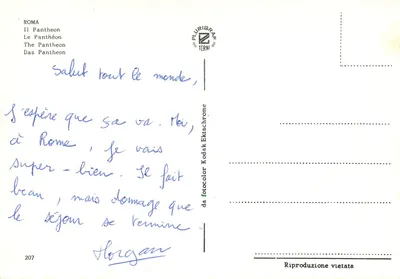 ROMA
Il Pantheon
Le Panthéon
The Pantheon
Das Pantheon
PLURIGRAF
TERNI
Salut tout le monde,
J'espère que ça va. Moi,
à Rome, je vais
super-bien. Il fait
beau, mais dommage que
le séjour se termine
Morgan
207
da fotocolor Kodak Ektachrome
Riproduzione vietata